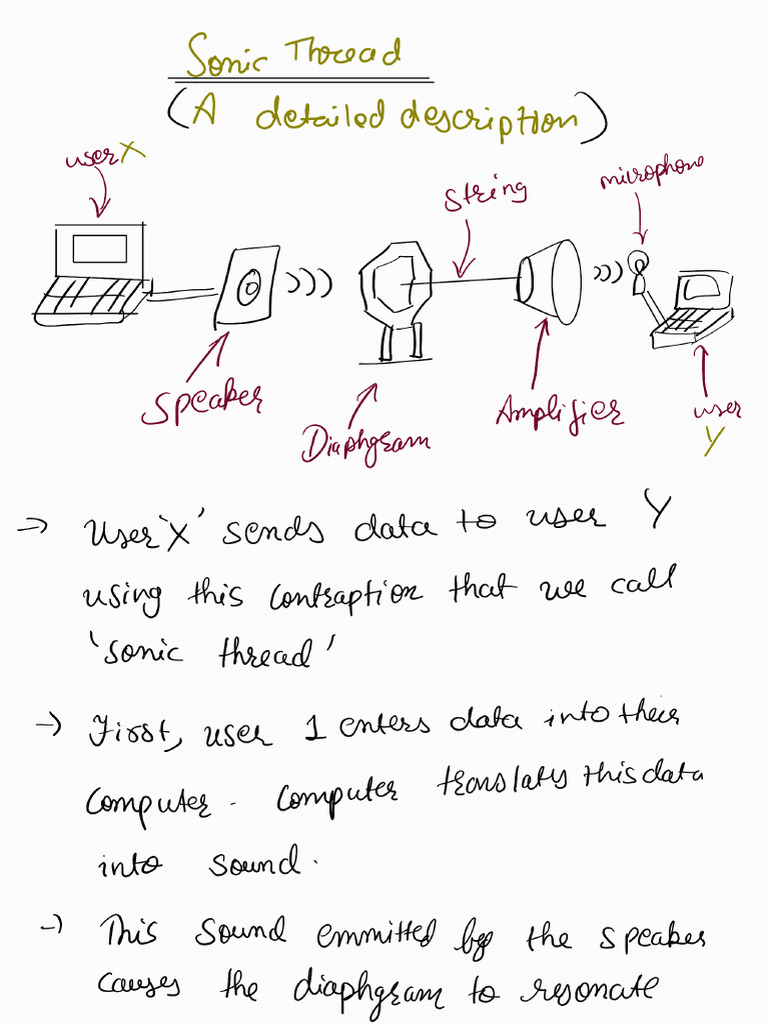 Sonic Thread
(A detailed description)
user X
string
microphone
Speaker
Diaphgram
Amplifier
user
Y
→ User 'X' sends data to user Y
using this contraption that we call
'sonic thread'
→ First, user 1 enters data into their
computer. Computer translates this data
into sound.
→ This sound emmitted by the speaker
causes the diaphgram to resonate